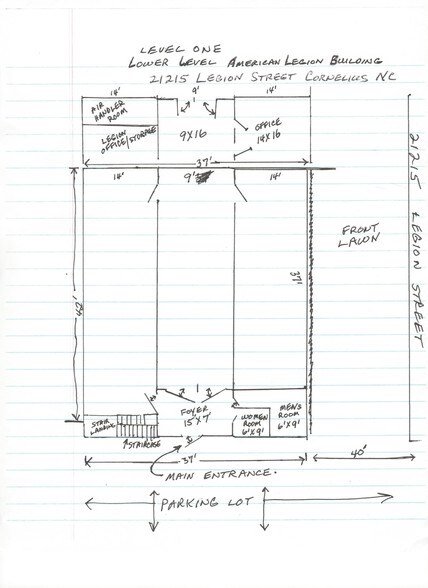 LEVEL ONE
LOWER LEVEL AMERICAN LEGION BUILDING
21215 LEGION STREET CORNELIUS NC
14'
9'
14'
AIR
HANDLER
ROOM
LEGION
OFFICE/STORAGE
9X16
OFFICE
14X16
37'
14'
9'
14'
21215 LEGION STREET
FRONT
LAWN
37'
FOYER
15'X7'
STAIR
LANDING
STAIRCASE
WOMEN
ROOM
6'X9'
MENS
ROOM
6'X9'
37'
40'
MAIN ENTRANCE.
PARKING LOT